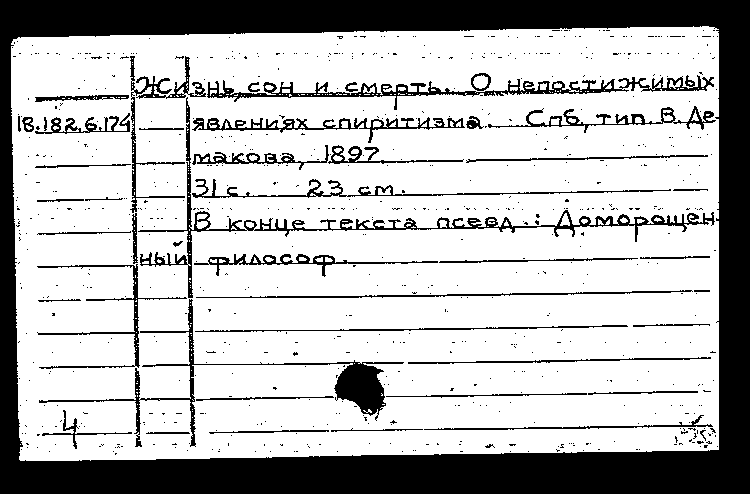 Жизнь, сон и смерть. О непостижимых
18.182.6.174 явлениях спиритизма. Спб, тип. В. Де-
макова, 1897.
31 с. 23 см.
В конце текста псевд.: Доморощен-
ный философ.
4